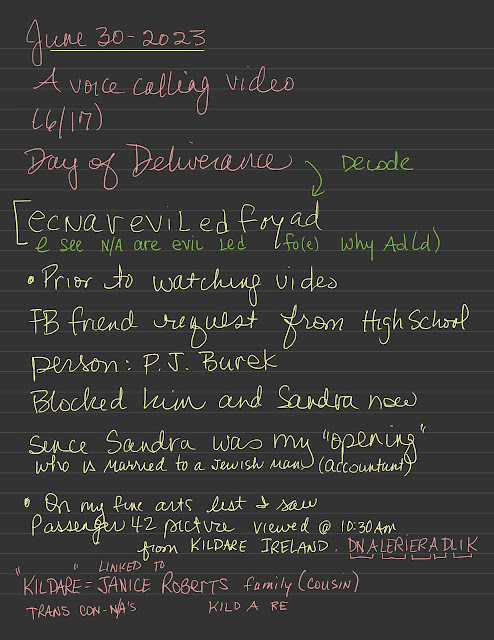 June 30-2023
A voice calling video
(6/17)
Day of Deliverance Decode
[ecnareviLedfoyad
e see N/A are evil Led fo(e) why Ad(d)
• Prior to watching video
FB friend request from High School
person: P.J. Burek
Blocked kim and Sandra now
since Sandra was my "opening"
who is married to a Jewish man (accountant)
• On my fine arts list I saw
Passenger 42 picture viewed @ 10:30 Am
from KILDARE IRELAND. DNALERIERADLIK
LINKED TO
"KILDARE" = JANICE ROBERTS family (cousin)
TRANS CON-N/A's KILD A RE